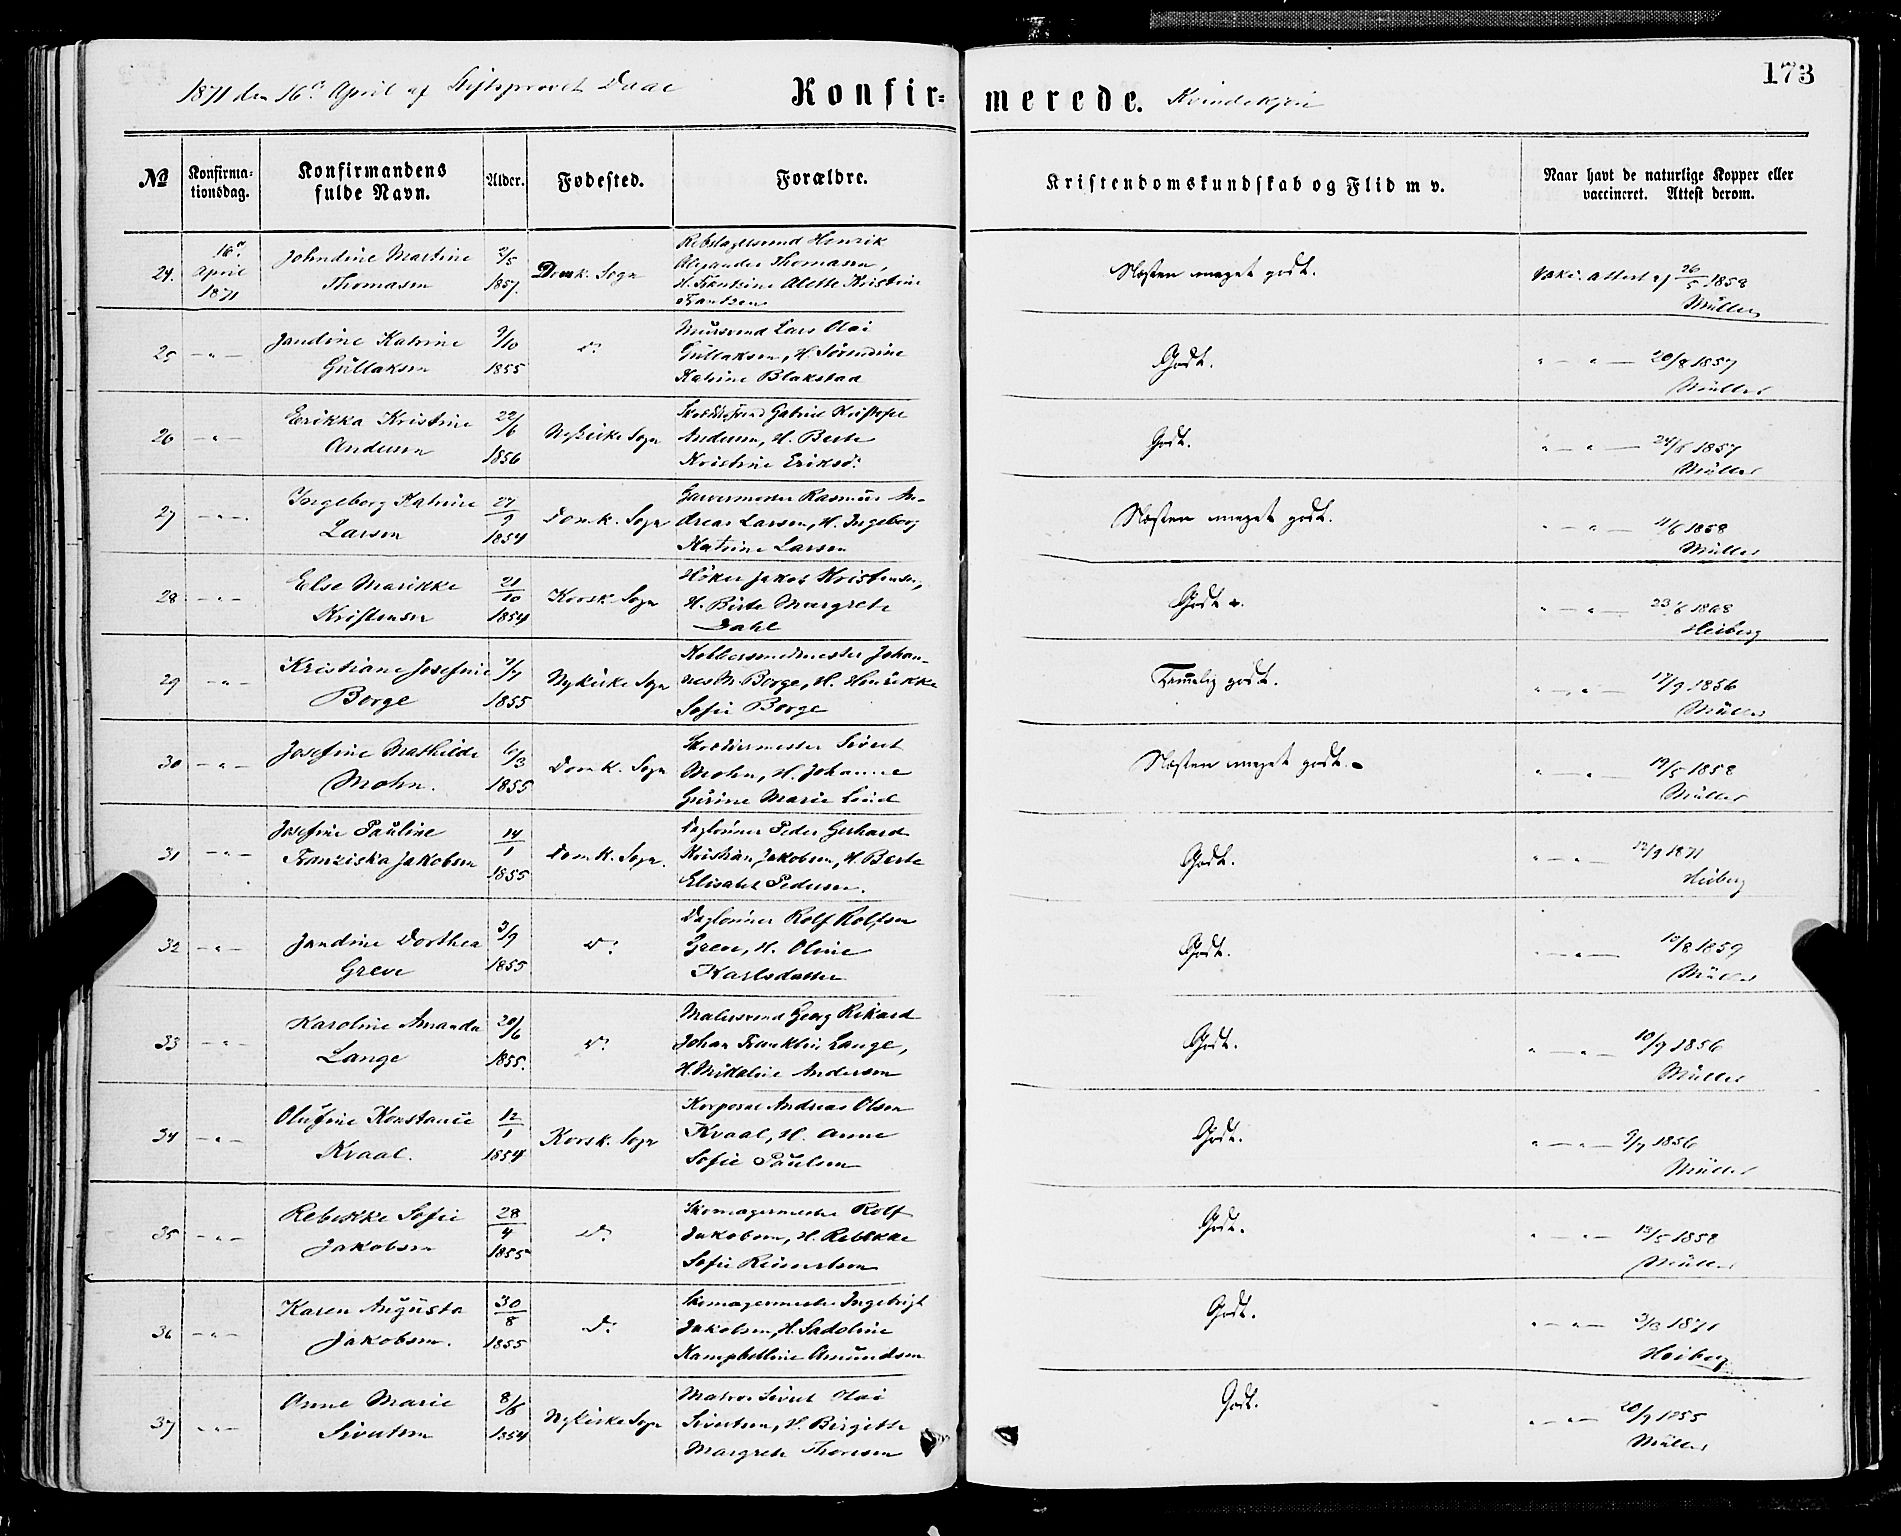 173
1871 den 16de April af Stiftsprovst Daae
Konfir=
merede. Kvindekjøn
No
Konfirma=
tionsdag.
Konfirmandens
fulde Navn.
Alder.
Fødested.
Forældre.
Kristendomskundskab og Flid m v.
Naar havt de naturlige Kopper eller
vaccineret. Attest derom.
24. 16de April 1871
Johndine Martine
Thomasen
2/5 1857.
Domk. Sogn
Rebslagersvend Henrik
Alexander Thomasen,
H. Alette Kristine
Frantzen
Næsten meget godt.
Vakc. attest af 26/5 1858
Müller
25 - " -
Jandine Katrine
Gullaksen
9/10 1855
do
Mursvend Lars Olai
Gullaksen, H. Sørendine
Katrine Blakstad
Godt.
" - " - 20/8 1857
Müller
26 - " -
Erikka Kristine
Andersen
22/6 1856
Nykirke Sogn
Gabriel Kristofer
Andersen, H. Berte
Kristine Eriksd:
Godt.
" - " - 24/6 1857
Müller
27 - " -
Ingeborg Katrine
Larsen
27/9 1854
Domk. Sogn
Garvermester Rasmus An-
dreas Larsen, H. Ingeborg
Katrine Larsen
Næsten meget godt.
" - " - 11/6 1858
Müller
28 - " -
Else Marikke
Kristensen
21/10 1854
Korsk. Sogn
Høker Jakob Kristensen,
H. Birte Margrete
Dahl
Godt.
" - " - 23/6 1868
Heiberg
29 - " -
Kristiane Josefine
Borge
2/7 1855
Nykirke Sogn
Kobbersmedmester Johan-
nes M. Borge, H. Henrikke
Sofie Borge
Temmelig godt.
" - " - 17/9 1856
Müller
30 - " -
Josefine Mathilde
Mohn.
6/3 1855
Domk. Sogn
Skræddermester Sivert
Mohn, H. Johanne
Gurine Marie Lind
Næsten meget godt.
" - " - 19/5 1858
Müller
31 - " -
Josefine Pauline
Franziska Jakobsen
14/1 1855
Domk. Sogn.
Daglønner Peder Gerhard
Kristian Jakobsen, H. Berte
Elisabet Pedersen.
Godt.
" - " - 12/9 1871
Heiberg
32 - " -
Jandine Dorthea
Greve
3/9 1855
do
Daglønner Rolf Rolfsen
Greve, H. Oline
Karlsdatter
Godt.
" - " - 18/8 1859
Müller
33 - " -
Karoline Amanda
Lange
20/6 1855.
do
Malersvend Georg Rikard
Johan Franklin Lange,
H. Mikaline Andersen
Godt.
" - " - 10/9 1856
Müller
34 - " -
Olufine Konstance
Kvaal.
12/1 1854
Korsk. Sogn
Korporal Andreas Olsen
Kvaal, H. Anne
Sofie Paulsen
Godt.
" - " - 9/7 1856
Müller
35 - " -
Rebekke Sofie
Jakobsen
28/4 1855
do
Skomagermester Rolf
Jakobsen, H. Rebekka
Sofie Reinertsen
Godt.
" - " - 13/5 1858
Müller
36 - " -
Karen Augusta
Jakobsen.
30/8 1855
do
Skomagermester Ingebrigt
Jakobsen, H. Sadoline
Kampbelline Amundsen
Godt.
" - " - 3/3 1871
Heiberg
37 - " -
Anne Marie
Sivertsen
8/6 1854
Nykirke Sogn
Matros Sivert Olai
Sivertsen, H. Birgitte
Margrete Thoresen
Godt.
" - " - 20/9 1855
Müller